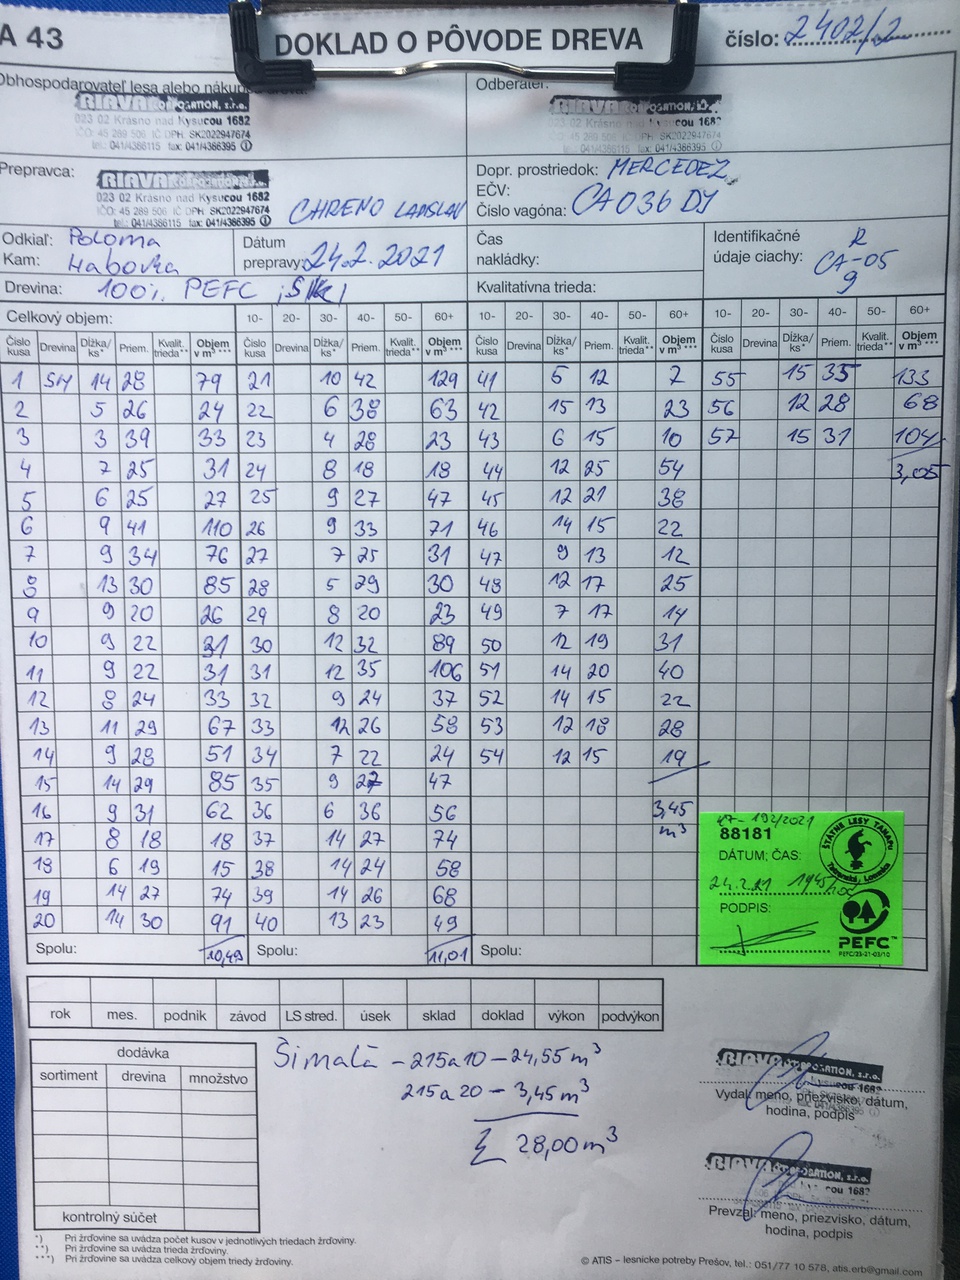 A 43
DOKLAD O PÔVODE DREVA
číslo: 2402/2
Obhospodarovateľ lesa alebo nákupca dreva:
RIAVA CORPORATION, s.r.o.
023 02 Krásno nad Kysucou 1682
IČO: 45 289 506 IČ DPH SK2022947674
tel.: 041/4386115 fax: 041/4386395
Odberateľ:
RIAVA CORPORATION, s.r.o.
023 02 Krásno nad Kysucou 1682
IČO: 45 289 506 IČ DPH SK2022947674
tel.: 041/4386115 fax: 041/4386395
Prepravca:
RIAVA CORPORATION, s.r.o.
023 02 Krásno nad Kysucou 1682
IČO: 45 289 506 IČ DPH SK2022947674
tel.: 041/4386115 fax: 041/4386395
CHRENO LADISLAV
Dopr. prostriedok: MERCEDEZ
EČV: CA036DJ
Číslo vagóna:
Odkiaľ: Poloma
Kam: Habovka
Dátum prepravy: 24.2.2021
Čas nakládky:
Identifikačné údaje ciachy: R CA-05 9
Drevina: 100% PEFC
Kvalitatívna trieda:
Celkový objem: 10- 20- 30- 40- 50- 60+ 10- 20- 30- 40- 50- 60+ 10- 20- 30- 40- 50- 60+
Číslo kusa Drevina Dĺžka/ks* Priem. Kvalit. trieda** Objem v m³*** Číslo kusa Drevina Dĺžka/ks* Priem. Kvalit. trieda** Objem v m³*** Číslo kusa Drevina Dĺžka/ks* Priem. Kvalit. trieda** Objem v m³*** Číslo kusa Drevina Dĺžka/ks* Priem. Kvalit. trieda** Objem v m³***
1 SM 14 28 79 21 10 42 129 41 6 12 7 55 15 35 133
2 5 26 24 22 6 38 63 42 15 13 23 56 12 28 68
3 3 39 33 23 4 28 23 43 6 15 10 57 15 31 104
4 7 25 31 24 8 18 18 44 12 25 54 3,05
5 6 25 27 25 9 27 47 45 12 21 38
6 9 41 110 26 9 33 71 46 14 15 22
7 9 34 76 27 7 25 31 47 9 13 12
8 13 30 85 28 5 29 30 48 12 17 25
9 9 20 26 29 8 20 23 49 7 17 14
10 9 22 31 30 12 32 89 50 12 19 31
11 9 22 31 31 12 35 106 51 14 20 40
12 8 24 33 32 9 24 37 52 14 15 22
13 11 29 67 33 12 26 58 53 12 18 28
14 9 28 51 34 7 22 24 54 12 15 19
15 14 29 85 35 9 27 47
16 9 31 62 36 6 36 56 3,45
17 8 18 18 37 14 27 74 m³
18 6 19 15 38 14 24 58
19 14 27 74 39 14 26 68
20 14 30 91 40 13 23 49
Spolu: 10,49 Spolu: 11,01 Spolu:
47-192/2021
88181
DÁTUM; ČAS:
24.2.21
PODPIS:
ŠTÁTNE LESY TANAPU
Tatranská Lomnica
PEFC™
PEFC/25-21-03/10
rok mes. podnik závod LS stred. úsek sklad doklad výkon podvýkon
dodávka
sortiment drevina množstvo
kontrolný súčet
Šimala - 215a10 - 24,55 m³
215a20 - 3,45 m³
Σ 28,00 m³
RIAVA CORPORATION, s.r.o.
Vydal: meno, priezvisko, dátum,
hodina, podpis
RIAVA CORPORATION, s.r.o.
Prevzal: meno, priezvisko, dátum,
hodina, podpis
*) Pri žrďovine sa uvádza počet kusov v jednotlivých triedach žrďoviny.
**) Pri žrďovine sa uvádza trieda žrďoviny.
***) Pri žrďovine sa uvádza celkový objem triedy žrďoviny.
© ATIS – lesnícke potreby Prešov, tel.: 051/77 10 578, atis.erb@gmail.com